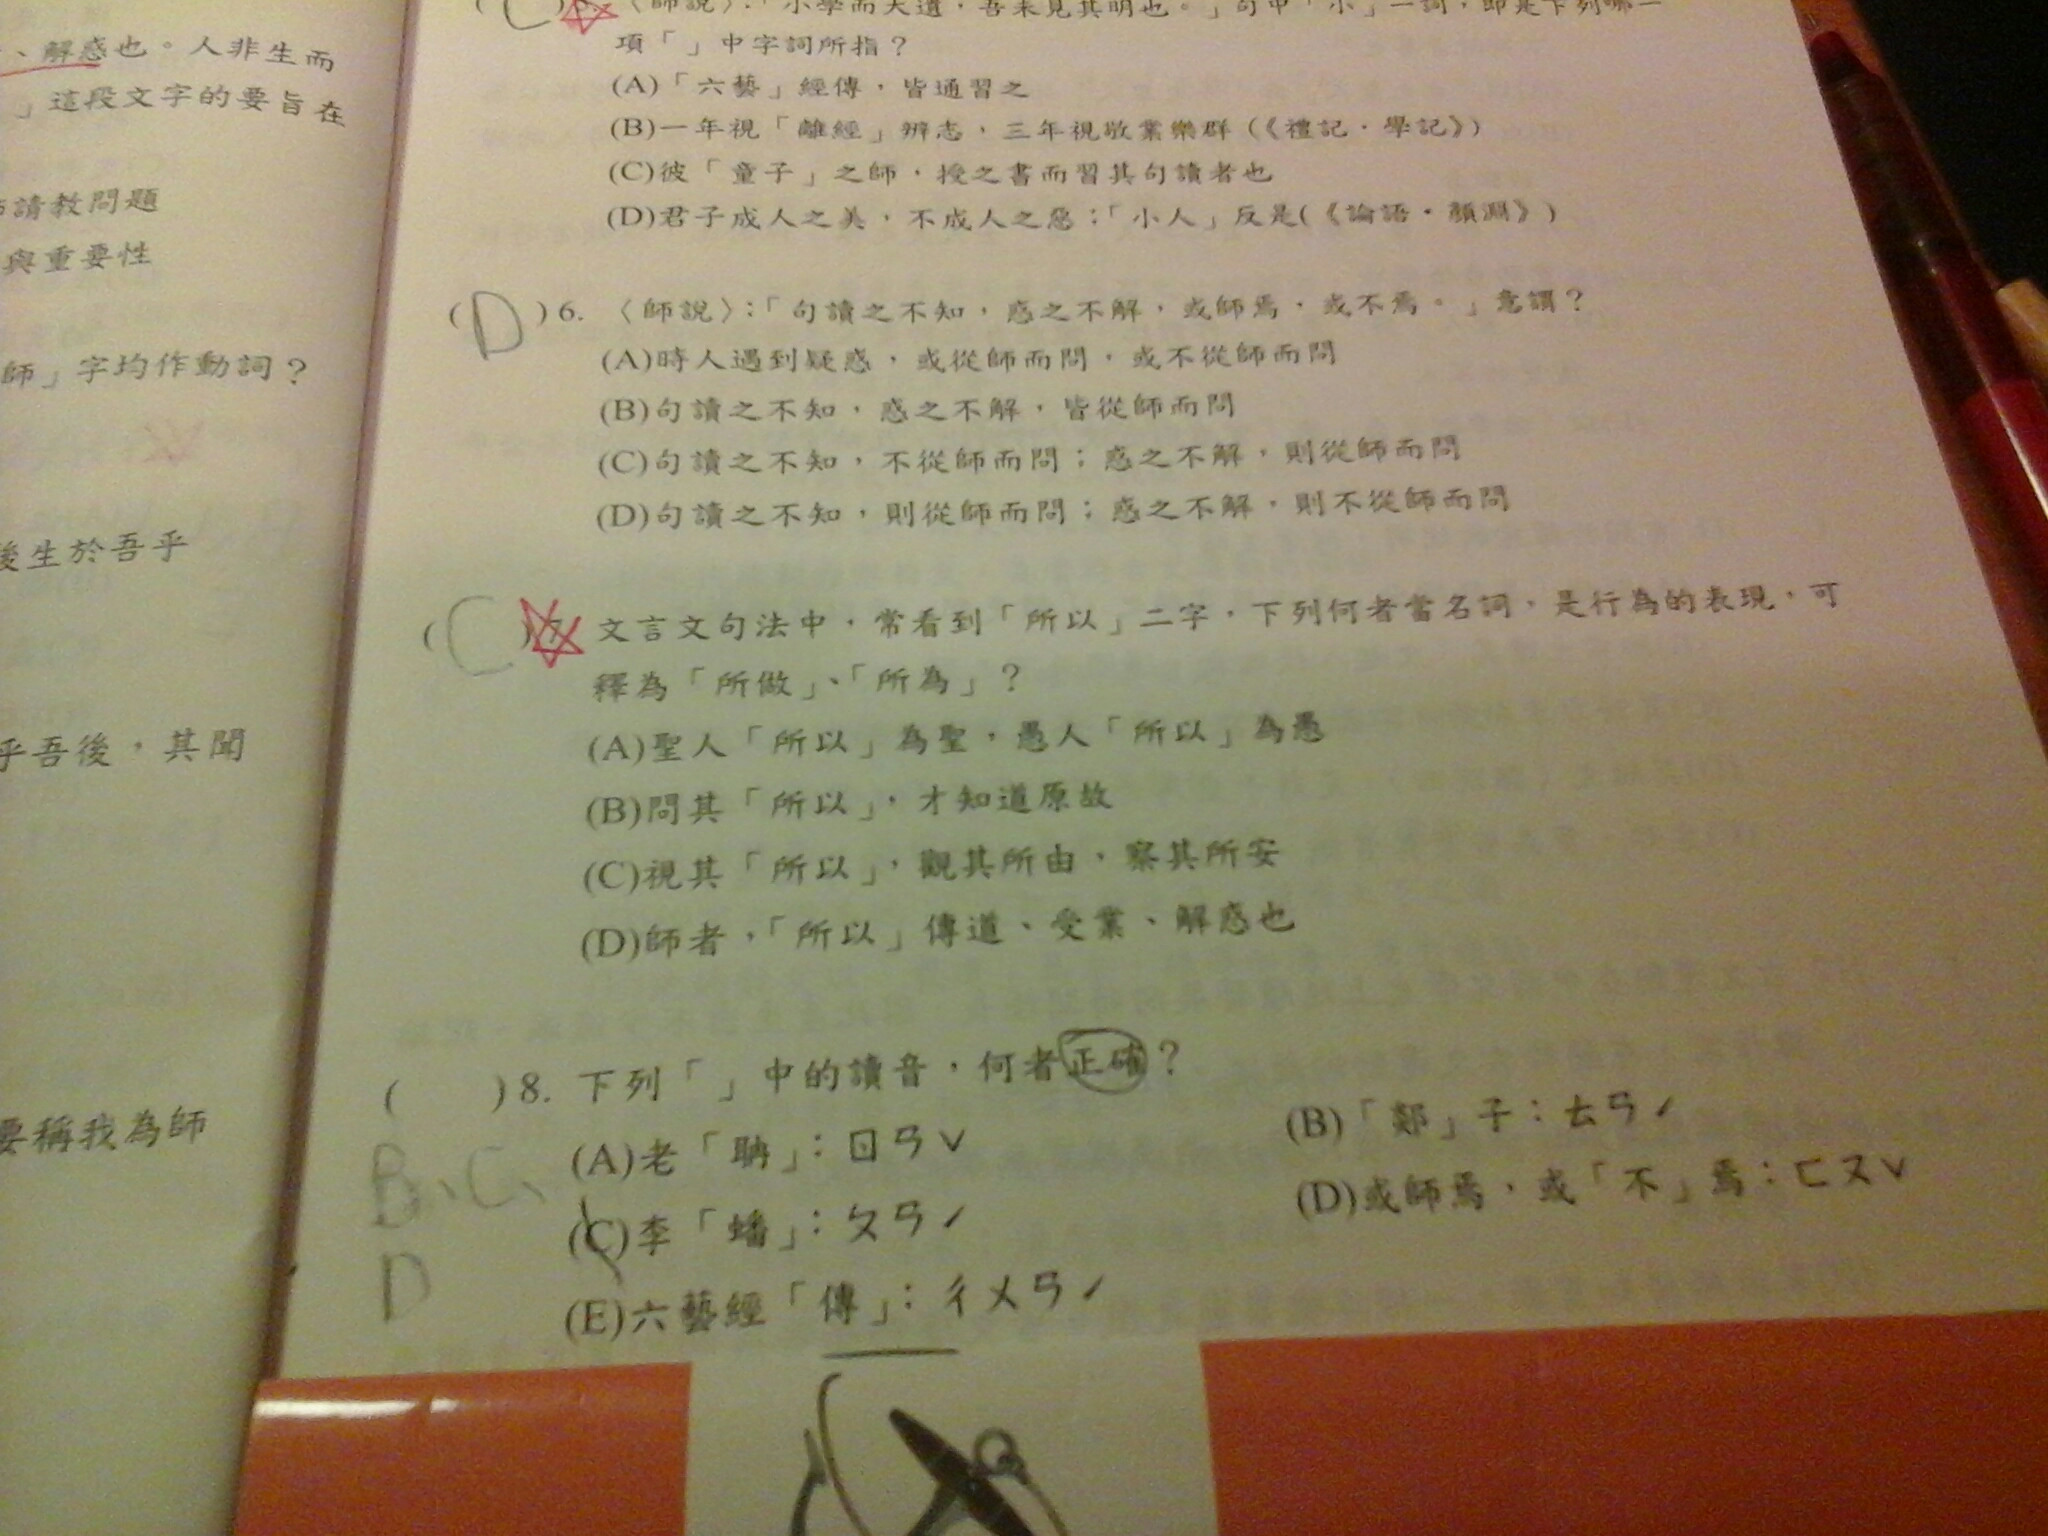 、解惑也。人非生而
」這段文字的要旨在
請教問題
與重要性
師」字均作動詞?
後生於吾乎
乎吾後,其聞
要稱我為師
(C) 〈師說〉:「小學而大遺,吾未見其明也。」句中「小」一詞,即是下列哪一
項「」中字詞所指?
(A)「六藝」經傳,皆通習之
(B)一年視「離經」辨志,三年視敬業樂群(《禮記.學記》)
(C)彼「童子」之師,授之書而習其句讀者也
(D)君子成人之美,不成人之惡;「小人」反是(《論語.顏淵》)
(D)6. 〈師說〉:「句讀之不知,惑之不解,或師焉,或不焉。」意謂?
(A)時人遇到疑惑,或從師而問,或不從師而問
(B)句讀之不知,惑之不解,皆從師而問
(C)句讀之不知,不從師而問;惑之不解,則從師而問
(D)句讀之不知,則從師而問;惑之不解,則不從師而問
(C)7. 文言文句法中,常看到「所以」二字,下列何者當名詞,是行為的表現,可
釋為「所做」、「所為」?
(A)聖人「所以」為聖,愚人「所以」為愚
(B)問其「所以」,才知道原故
(C)視其「所以」,觀其所由,察其所安
(D)師者,「所以」傳道、受業、解惑也
( )8. 下列「」中的讀音,何者正確?
B、C、
D
(A)老「聃」:ㄖㄢˇ (B)「郯」子:ㄊㄢˊ
(C)李「蟠」:ㄆㄢˊ (D)或師焉,或「不」焉:ㄈㄡˇ
(E)六藝經「傳」:ㄔㄨㄢˊ